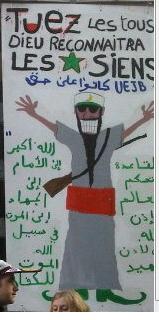 Tuez Les tous
DIEU RECONNAITRA
LES SIENS
UEJB كانوا على حق
"الله أكبر
إلى الأمام
إلى
الجهاد
إلى الموت
في سبيل
الله
الموت
للكفار
القاعدة
تحكم
العالم
لادن